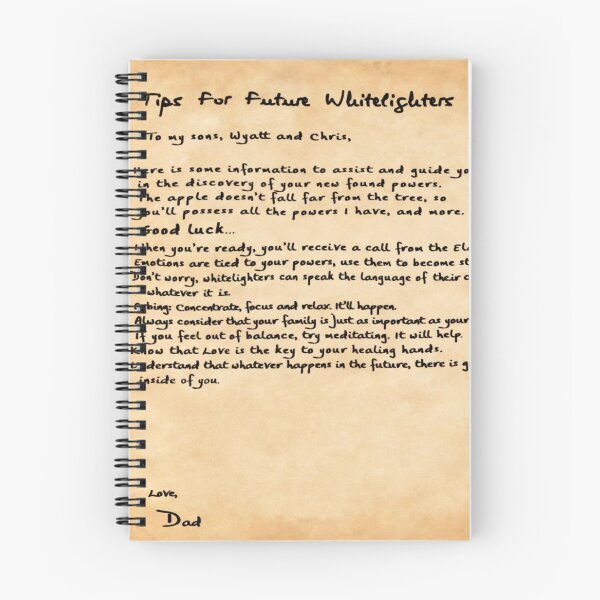 Tips For Future Whitelighters
To my sons, Wyatt and Chris,
Here is some information to assist and guide yo
in the discovery of your new found powers.
The apple doesn't fall far from the tree, so
you'll possess all the powers I have, and more.
Good luck...
When you're ready, you'll receive a call from the El
Emotions are tied to your powers, use them to become st
Don't worry, whitelighters can speak the language of their c
whatever it is.
Orbing: Concentrate, focus and relax. It'll happen.
Always consider that your family is just as important as your
If you feel out of balance, try meditating. It will help.
Know that Love is the key to your healing hands.
Understand that whatever happens in the future, there is g
inside of you.
Love,
Dad